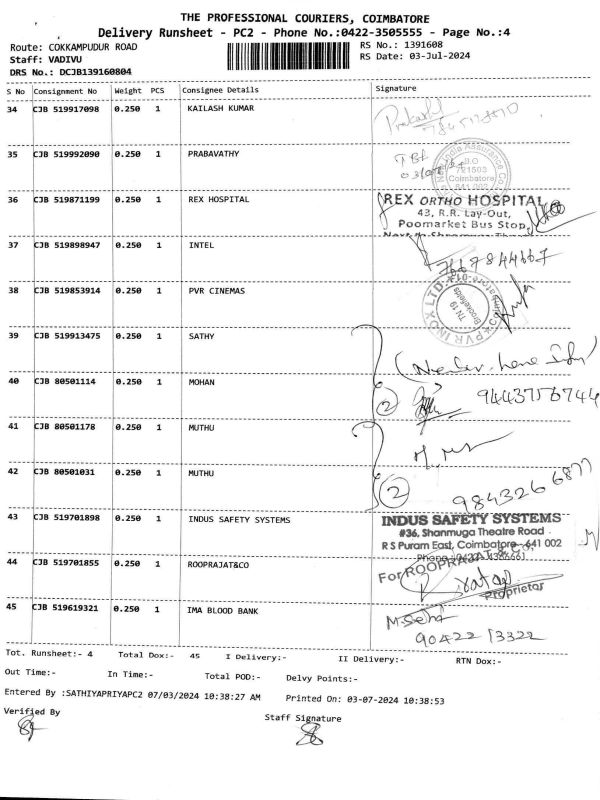 THE PROFESSIONAL COURIERS, COIMBATORE
Delivery Runsheet - PC2 - Phone No.:0422-3505555 - Page No.:4
Route: COKKAMPUDUR ROAD RS No.: 1391608
Staff: VADIVU RS Date: 03-Jul-2024
DRS No.: DCJB139160804
S No Consignment No Weight PCS Consignee Details Signature
34 CJB 519917098 0.250 1 KAILASH KUMAR Prakash
35 CJB 519992090 0.250 1 PRABAVATHY
721503
Coimbatore
641 002
36 CJB 519871199 0.250 1 REX HOSPITAL REX ORTHO HOSPITAL
43, R.R. Lay-Out,
Poomarket Bus Stop,
37 CJB 519898947 0.250 1 INTEL 7667844667
38 CJB 519853914 0.250 1 PVR CINEMAS
PVR INOX LTD
TN 19
Brookefields
39 CJB 519913475 0.250 1 SATHY
40 CJB 80501114 0.250 1 MOHAN 2 9443756744
41 CJB 80501178 0.250 1 MUTHU
42 CJB 80501031 0.250 1 MUTHU 2 9843266877
43 CJB 519701898 0.250 1 INDUS SAFETY SYSTEMS INDUS SAFETY SYSTEMS
#36, Shanmuga Theatre Road
R S Puram East, Coimbatore - 641 002
44 CJB 519701855 0.250 1 ROOPRAJAT&CO For ROOPRAJAT & CO.
Proprietor
45 CJB 519619321 0.250 1 IMA BLOOD BANK
90422 13322
Tot. Runsheet:- 4 Total Dox:- 45 I Delivery:- II Delivery:- RTN Dox:-
Out Time:- In Time:- Total POD:- Delvy Points:-
Entered By :SATHIYAPRIYAPC2 07/03/2024 10:38:27 AM Printed On: 03-07-2024 10:38:53
Verified By Staff Signature